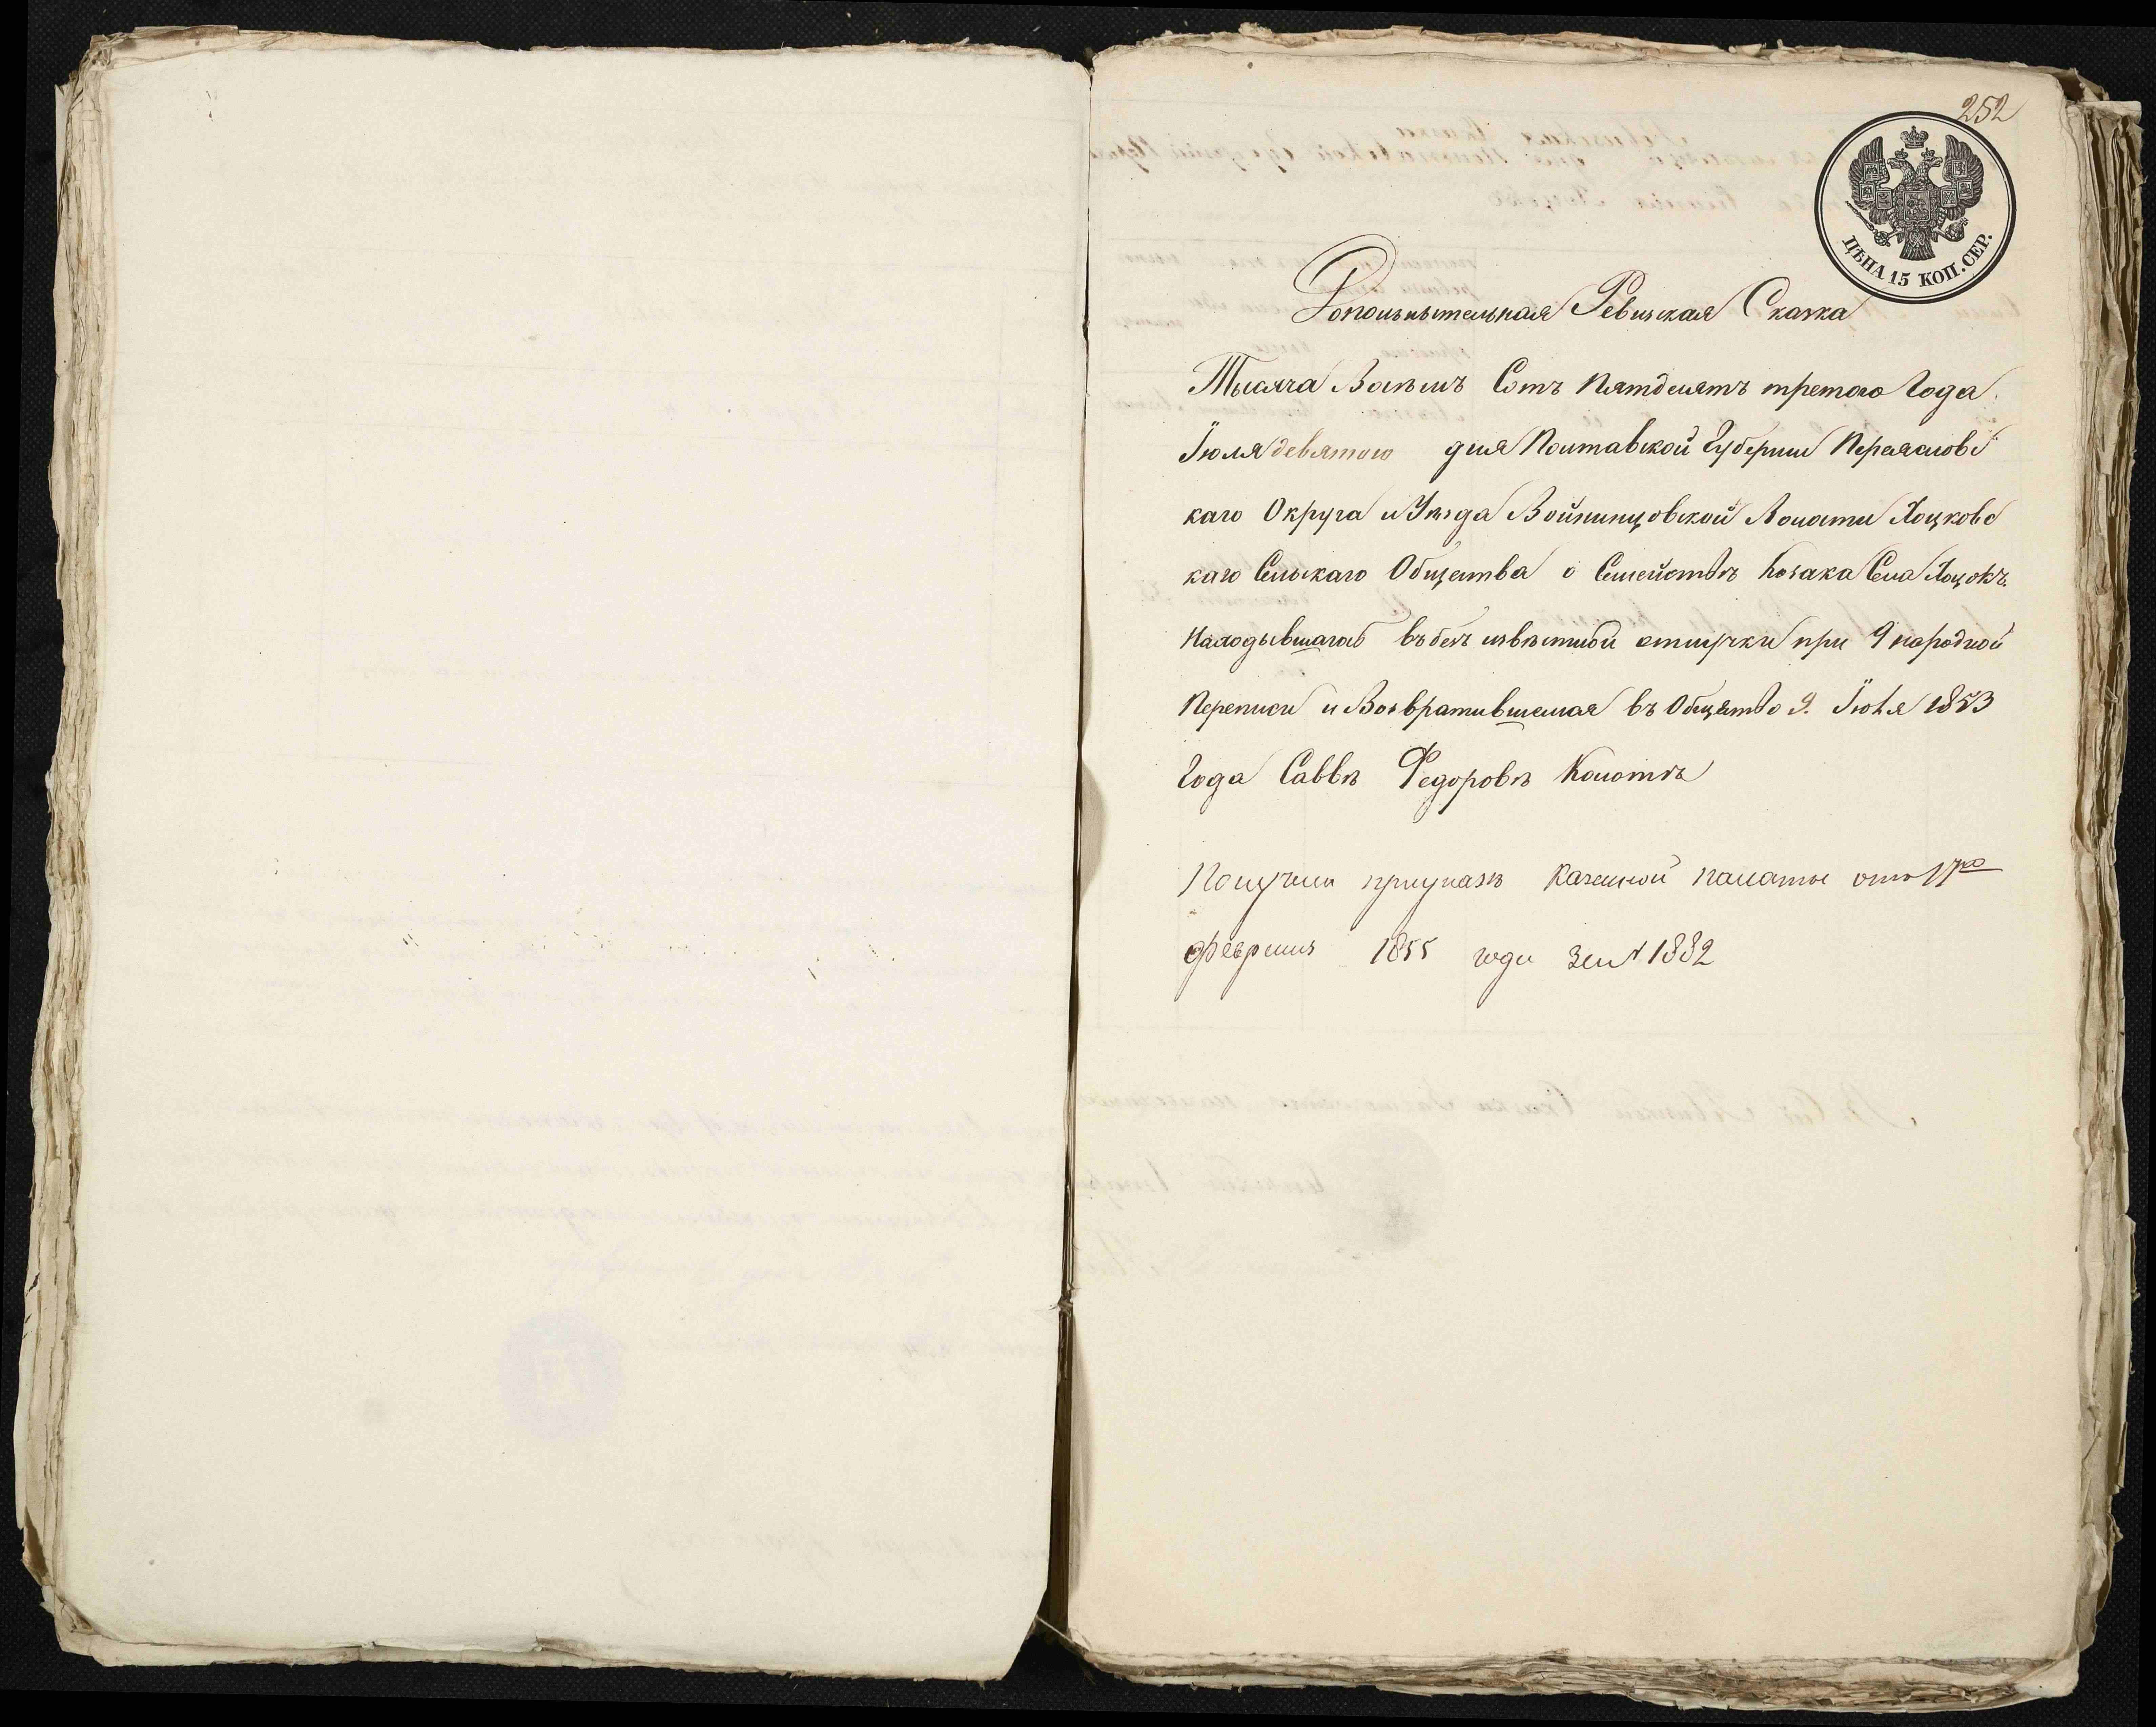 252
ЦѢНА 15 КОП. СЕР.
Дополнытельная Ревизская Сказка
Тысяча Восемъ Сотъ Пятдесятъ третого Года.
Іюля девятого дня Полтавской Губерніи Переяславс
каго Округа и Уѣзда Войнинцовской Волости Хоцковс
каго Сельскаго Общества о Семействѣ Козака Села Хоцокъ
Находывшагось въ без извѣстной отлучки при 9 народной
Переписи и Возвратившемся въ Общество 9. Іюля 1853
Года Саввѣ Федоровѣ Колотѣ
Получен при указѣ Казенной палаты отъ 17го
февраля 1855 года за № 1882